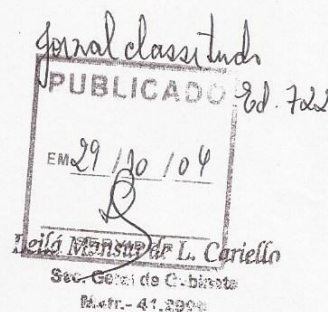 Jornal classitudo
PUBLICADO Ed. 722
EM 29 / 10 / 04
Leila Mansur de L. Cariello
Sec. Geral de Gabinete
Matr.- 41.